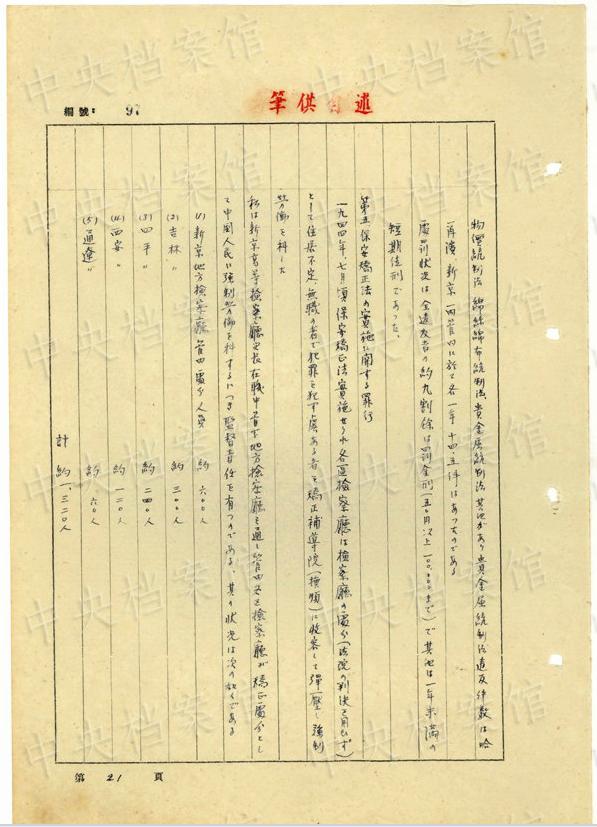 編號： 9
筆供自述
物價統制法、綿絲綿布統制法、貴金属統制法、其他があり貴金属統制法違反件数は哈
再濱、新京、四管内に於て各一年十四、五件はあつたのである
處罰状況は全違反者の約九割餘は罰金刑（五〇円以上一〇、〇〇〇まで）で其他は一年未満の
短期徒刑であつた、
第五 保安矯正法の実施に関する罪行
一九四四年、七月頃保安矯正法実施せられ各区検察廳は検察廳の處分（法院の判決を用ひず）
として住居不定、無職の者で犯罪を犯す虞ある者を矯正補導院（撫順）に收容して弾圧し強制
労働を科した
私は新京高等検察廳次長在職中管下地方検察廳を通し管内各区検察廳が矯正處分とし
て中国人民に強制労働を科するにつき監督責任を有つのである、其の状況は次の如くである
(1) 新京地方検察廳管内處分人員 約 六〇〇人
(2) 吉林 〃 約 三〇〇人
(3) 四平 〃 約 二四〇人
(4) 西安 〃 約 一二〇人
(5) 通遼 〃 約 六〇人
計 約 一、三二〇人
第 21 頁
中央档案馆